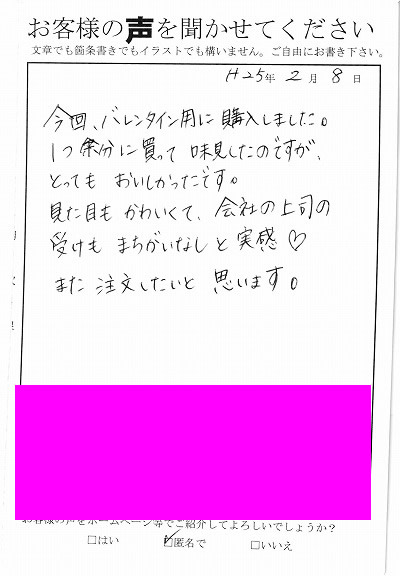 お客様の声を聞かせてください
文章でも箇条書きでもイラストでも構いません。ご自由にお書き下さい。
H25年 2月 8日
今回、バレンタイン用に購入しました。
1つ余分に買って味見したのですが、
とってもおいしかったです。
見た目もかわいくて、会社の上司の
受けもまちがいなしと実感♡
また注文したいと思います。
お客様の声をホームページ等でご紹介してよろしいでしょうか？
□はい ☑匿名で □いいえ